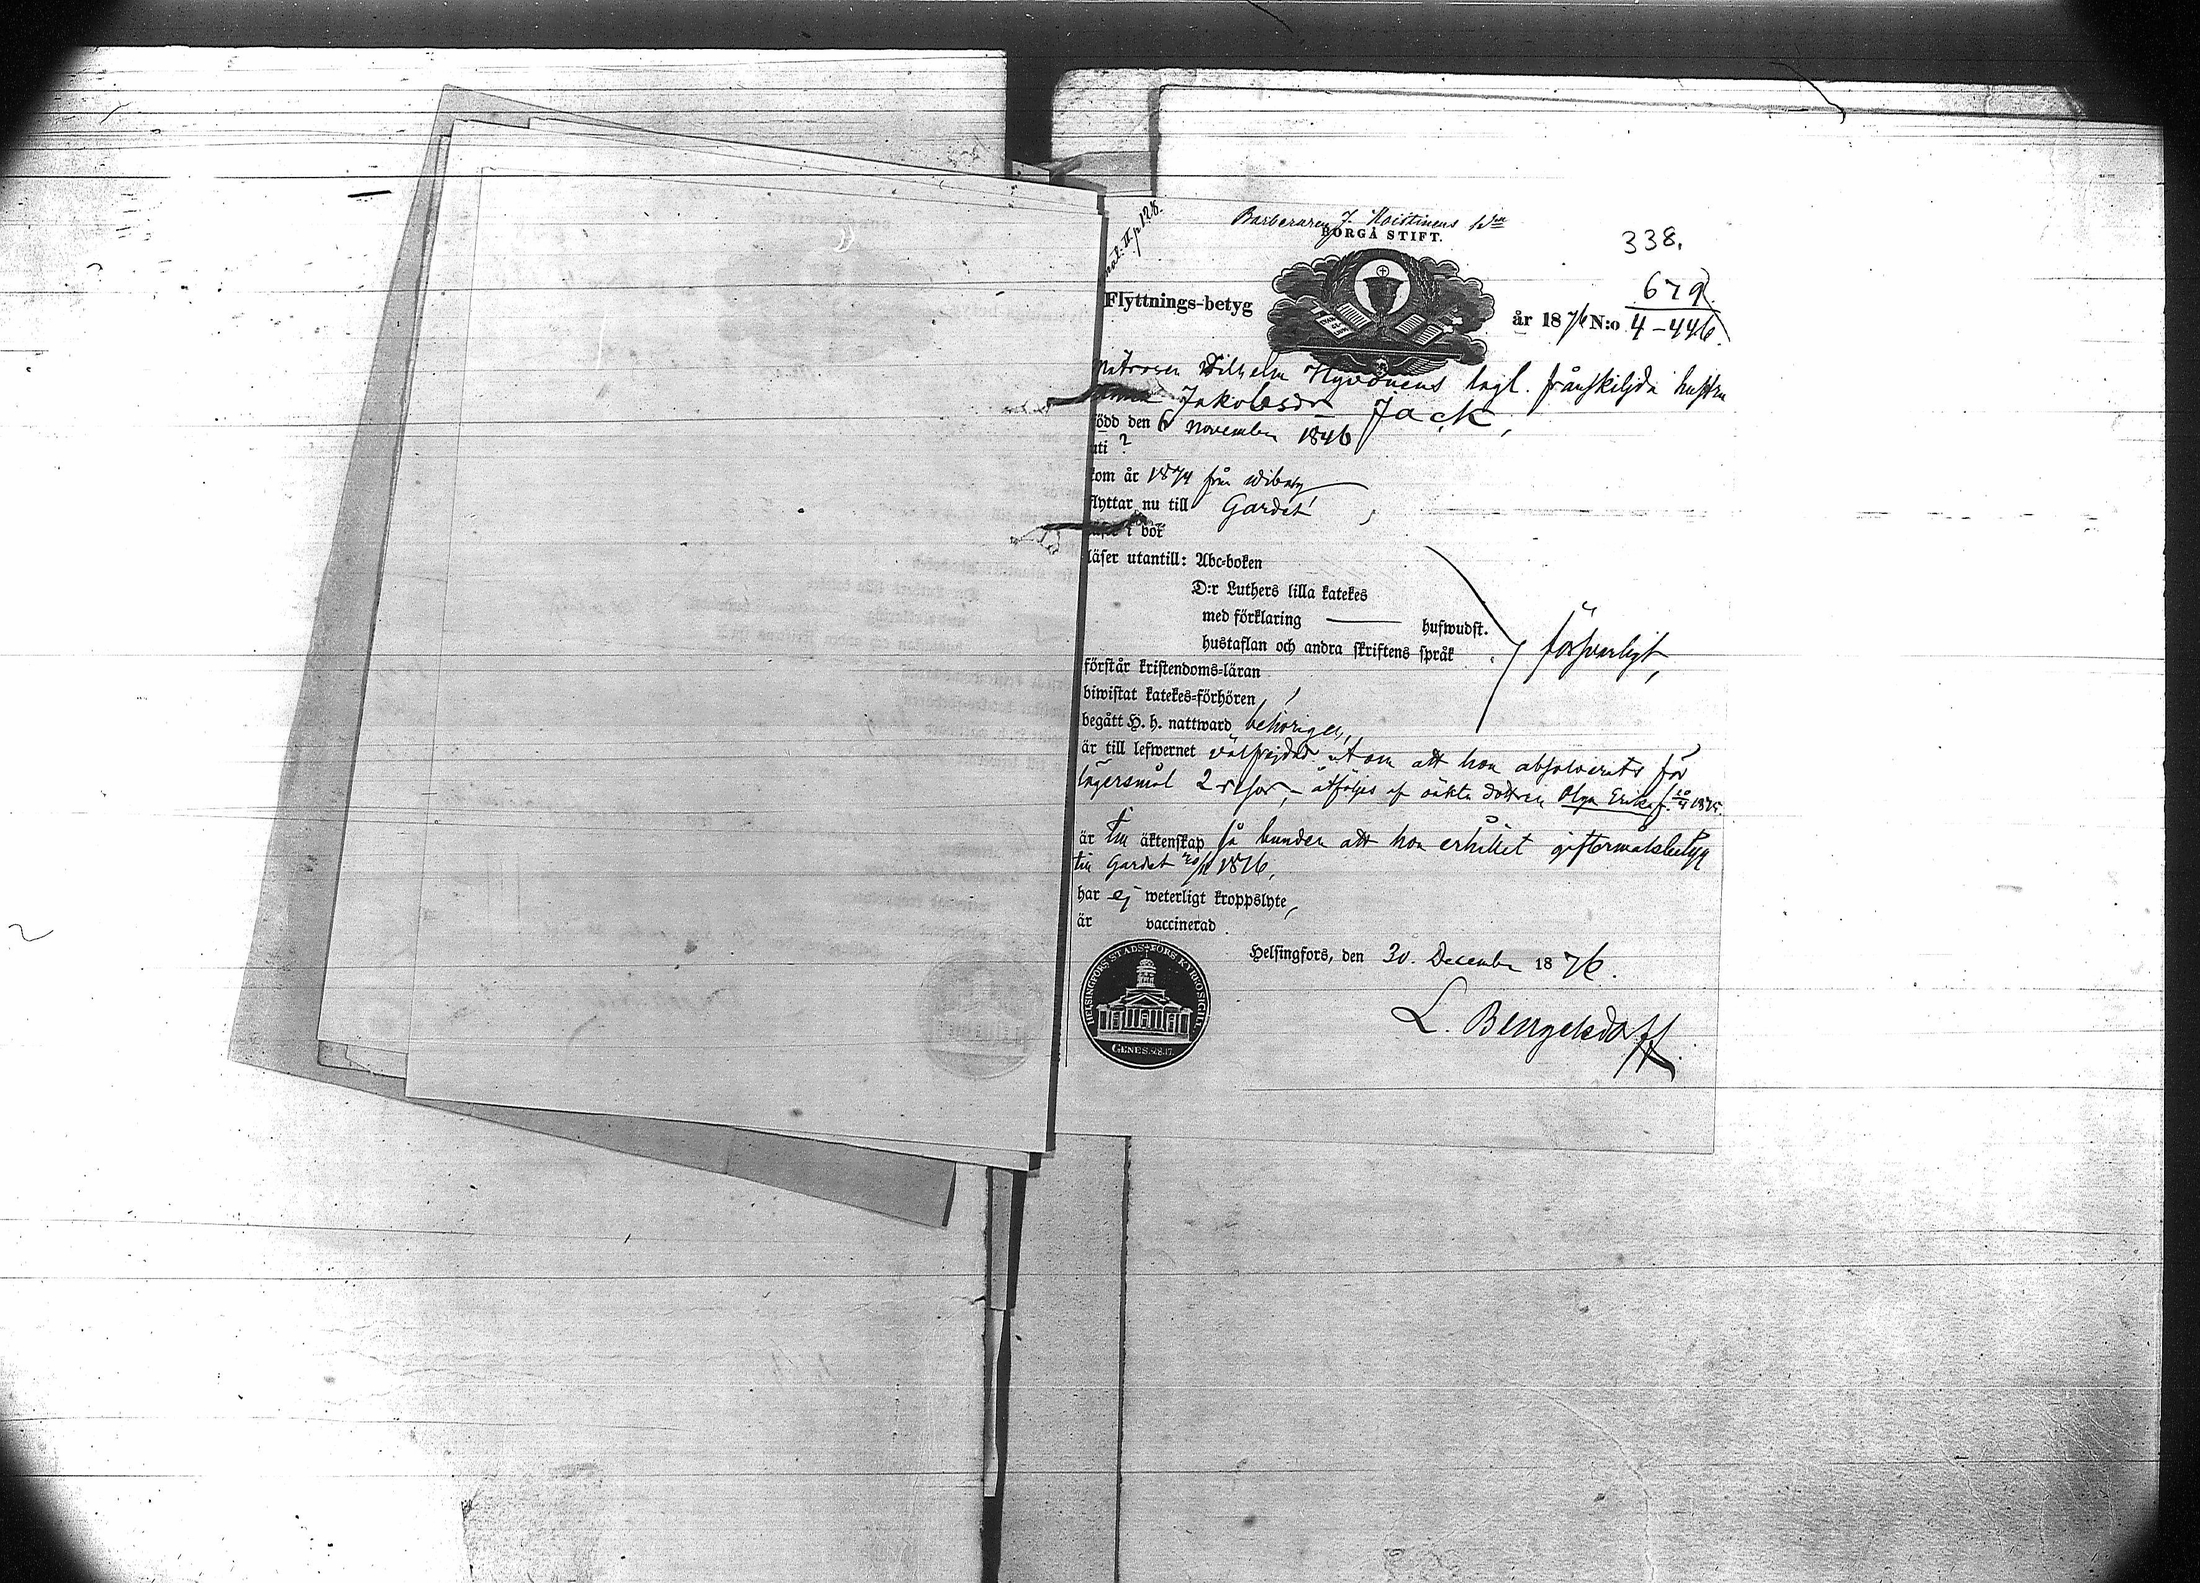 II p 128.
Barberaren J. Hoistinens
BORGÅ STIFT.
338.
679
Flyttnings-betyg
år 1876 N:o 4-446.
Wilhelm Hyvönens lagl. frånskiljda hustru
Jakobsdr Jack,
född den 6 November 1846
uti ?
kom år 1874 från Wiborg
flyttar nu till Gardet
läser i bok
läser utantill: Abc-boken
D:r Luthers lilla katekes
med förklaring — hufwudst.
hustaflan och andra skriftens språk
försvarligt,
förstår kristendoms-läran
biwistat katekes-förhören
begått H. h. nattward behörigen,
är till lefwernet välfrejdad utom att hon absolverats för
lägersmål 2 resor, - åtföljes af oäkta dottren Olga Erika f. 1875.
är till äktenskap så bunden att hon erhållit giftermålsbetyg
till Gardet 1876,
har ej weterligt kroppslyte,
är vaccinerad
Helsingfors, den 30. December 1876.
HELSINGFORS STADSFÖRS. KYRKOSIGILL.
GENES. 28.17.
L. Bengelsdorff